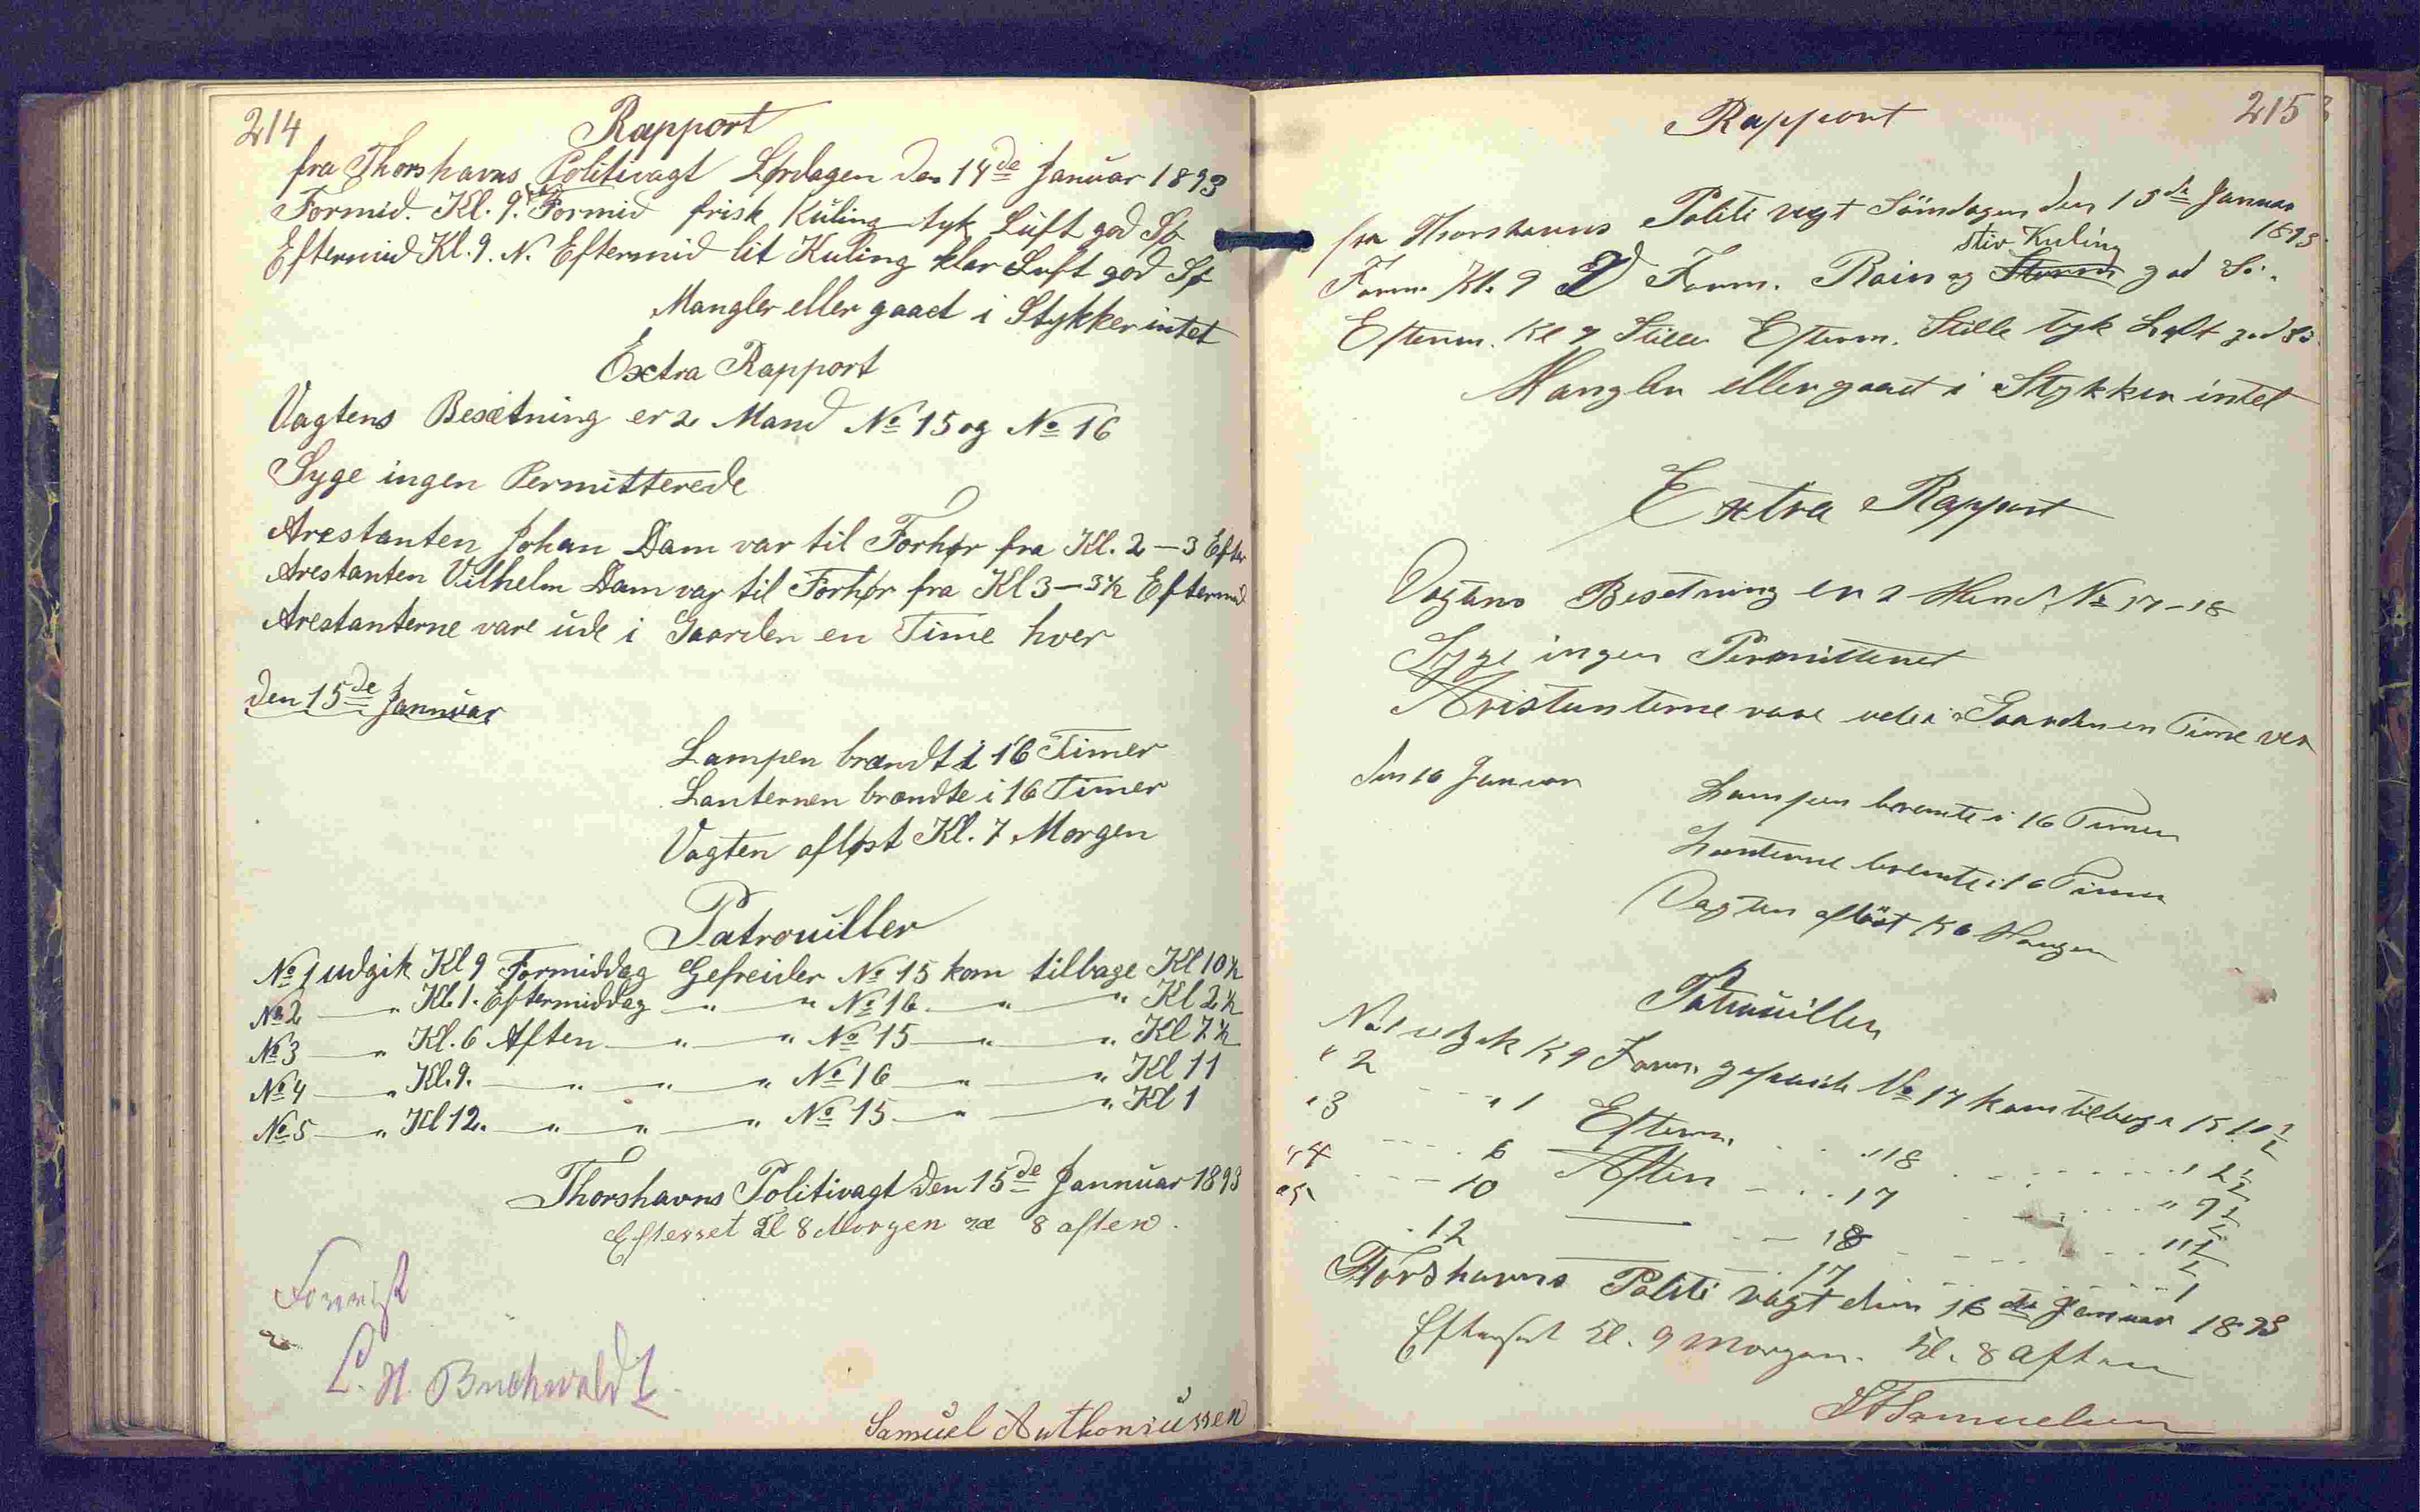 214
Rapport
fra Thorshavns Politivagt Lørdagen den 14de Januar 1893
Formid. Kl. 9. Formid frisk Kuling tyk Luft god Sø
Eftermid Kl. 9. N. Eftermid lit Kuling klar Luft god Sø
Mangler eller gaaet i Stykker intet
Extra Rapport
Vagtens Besætning er 2 Mand No 15 og No 16
Syge ingen Permitterede
Arestanten Johan Dam var til Forhør fra Kl. 2 - 3 Efter
Arestanten Vilhelm Dam var til Forhør fra Kl 3 - 3½ Eftermid
Arestanterne vare ude i Gaarden en Time hver
den 15de Januar
Lampen brændt i 16 Timer
Lanternen brændte i 16 Timer
Vagten afløst Kl. 7 Morgen
Patrouiller
No 1 udgik Kl 9 Formiddag Gefreider No 15 kom tilbage Kl 10½
No 2 — " Kl. 1. Eftermiddag — " — " No 16 — " — " Kl 2½
No 3 — " Kl. 6 Aften — " — " No 15 — " — " Kl 7½
No 4 — " Kl. 9. — " — " — " No 16 — " — " Kl 11
No 5 — " Kl 12. — " — " — " No 15 — " — " Kl 1
Thorshavns Politivagt den 15de Jannuar 1893
Efterset Kl 8 Morgen 8 aften.
L. H. Buchwaldt
Samuel Anthoniussen
215
Rapport
fra Thorshavns Politi vagt Söndagen den 15de Januar
1893
stiv Kuling
Form. Kl. 9 Form. Rain og Storm god Sö.
Efterm. Kl 9 Stille Efterm. Stille tyk Luft god Sö
Mangler eller gaaet i Stykker intet
Extra Rapport
Vagtens Besetning er 2 Mand No 17 - 18
Syge ingen Permitteret
Aristanterne vare ude i Gaarden en Time ver
den 16 Januar
Lampen brente i 16 Timer
Lanterne brente i 16 Timer
Vagten aflöst K 6 Morgen
Patrouiller
No 1 udgik K 9 Form. gefreide No 17 kom tilbage K 10½
" 2 " 1 Efterm. " 18 " 2½
" 3 6 Aften 17 " 7½
" 4 10 — 18 11½
" 5 12 — 17 1
Torshavns Politi vagt den 16de Januar 1893
Efterset Kl. 9 Morgen. Kl. 8 Aften
Samuelsen